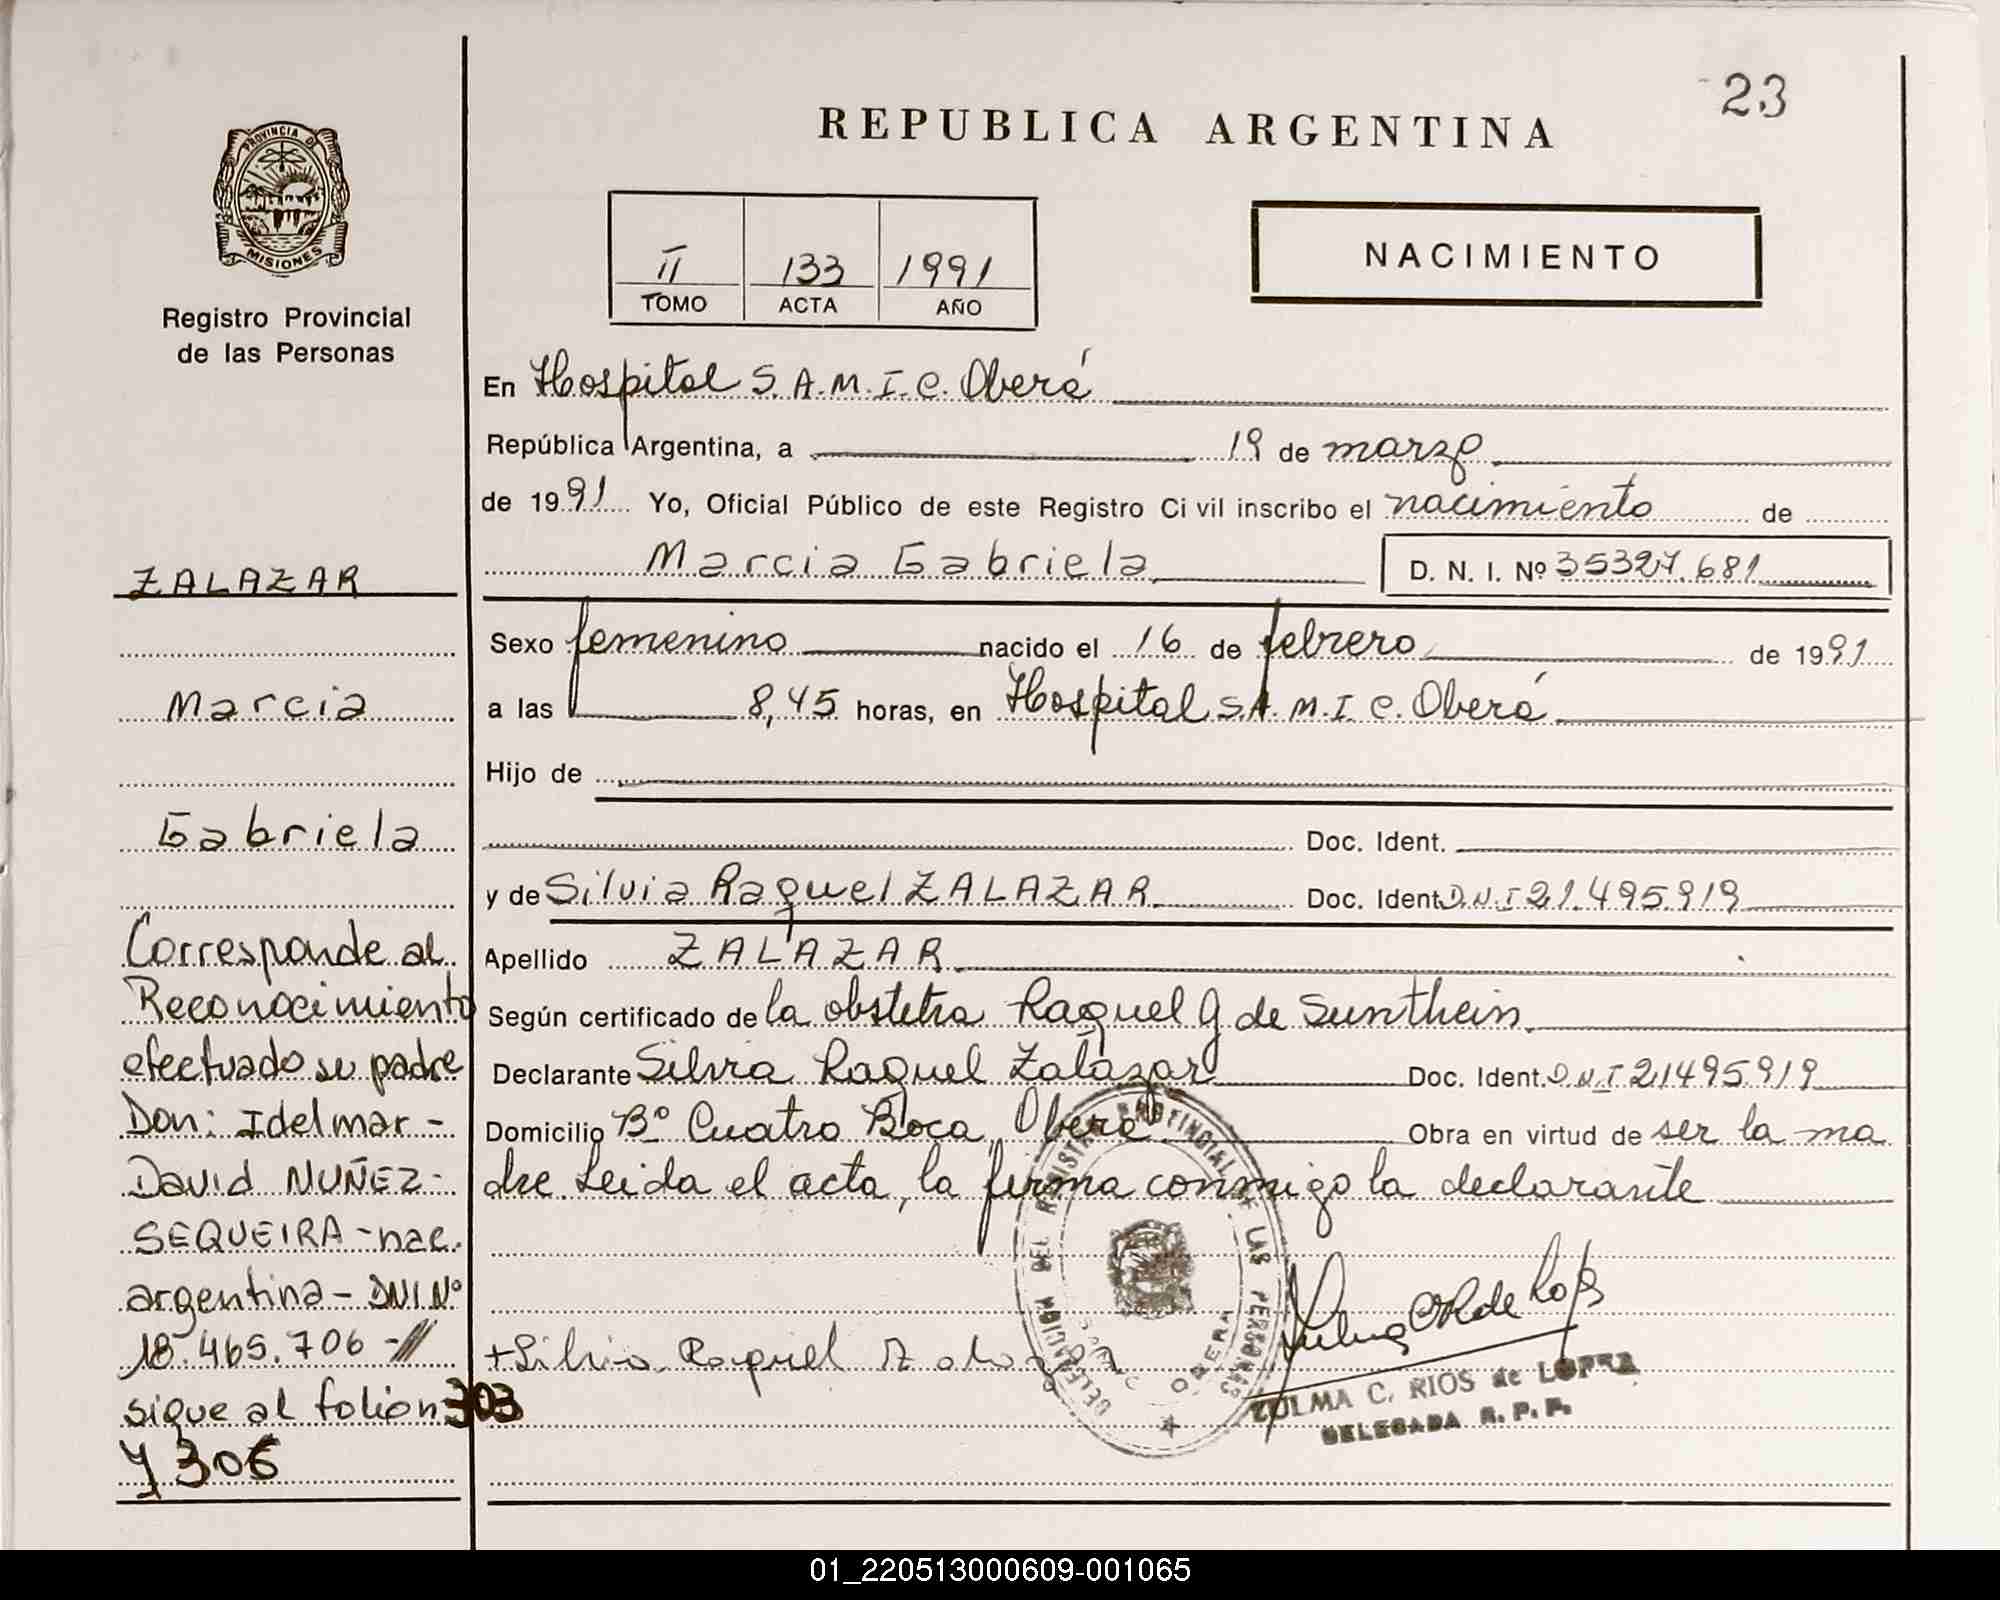 23
REPUBLICA ARGENTINA
PROVINCIA DE
MISIONES
Registro Provincial
de las Personas
II 133 1991
TOMO ACTA AÑO
NACIMIENTO
En Hospital S.A.M.I.C. Oberá
República Argentina, a 19 de marzo
de 1991 Yo, Oficial Público de este Registro Civil inscribo el nacimiento de
Marcia Gabriela D. N. I. Nº 35327.681
Sexo femenino nacido el 16 de febrero de 1991
a las 8,45 horas, en Hospital S.A.M.I.C. Oberá
Hijo de
Doc. Ident.
y de Silvia Raquel ZALAZAR Doc. Ident. D.N.I 21.495.919
Apellido ZALAZAR
Según certificado de la obstetra Raquel G de Sunthein
Declarante Silvia Raquel Zalazar Doc. Ident. D.N.I 21495919
Domicilio Bº Cuatro Boca, Oberá Obra en virtud de ser la ma
dre Leida el acta, la firma conmigo la declarante
+Silvia Raquel Zalazar
DELEGACION DEL REGISTRO PROVINCIAL DE LAS PERSONAS
OBERA
ZULMA C. RIOS de LOPEZ
DELEGADA R. P. P.
ZALAZAR
Marcia
Gabriela
Corresponde al
Reconocimiento
efectuado su padre
Don: Idelmar -
David NUÑEZ -
SEQUEIRA - nac.
argentina - DNI.Nº
18.465.706 -
sigue al folion 303
y 306
01_220513000609-001065